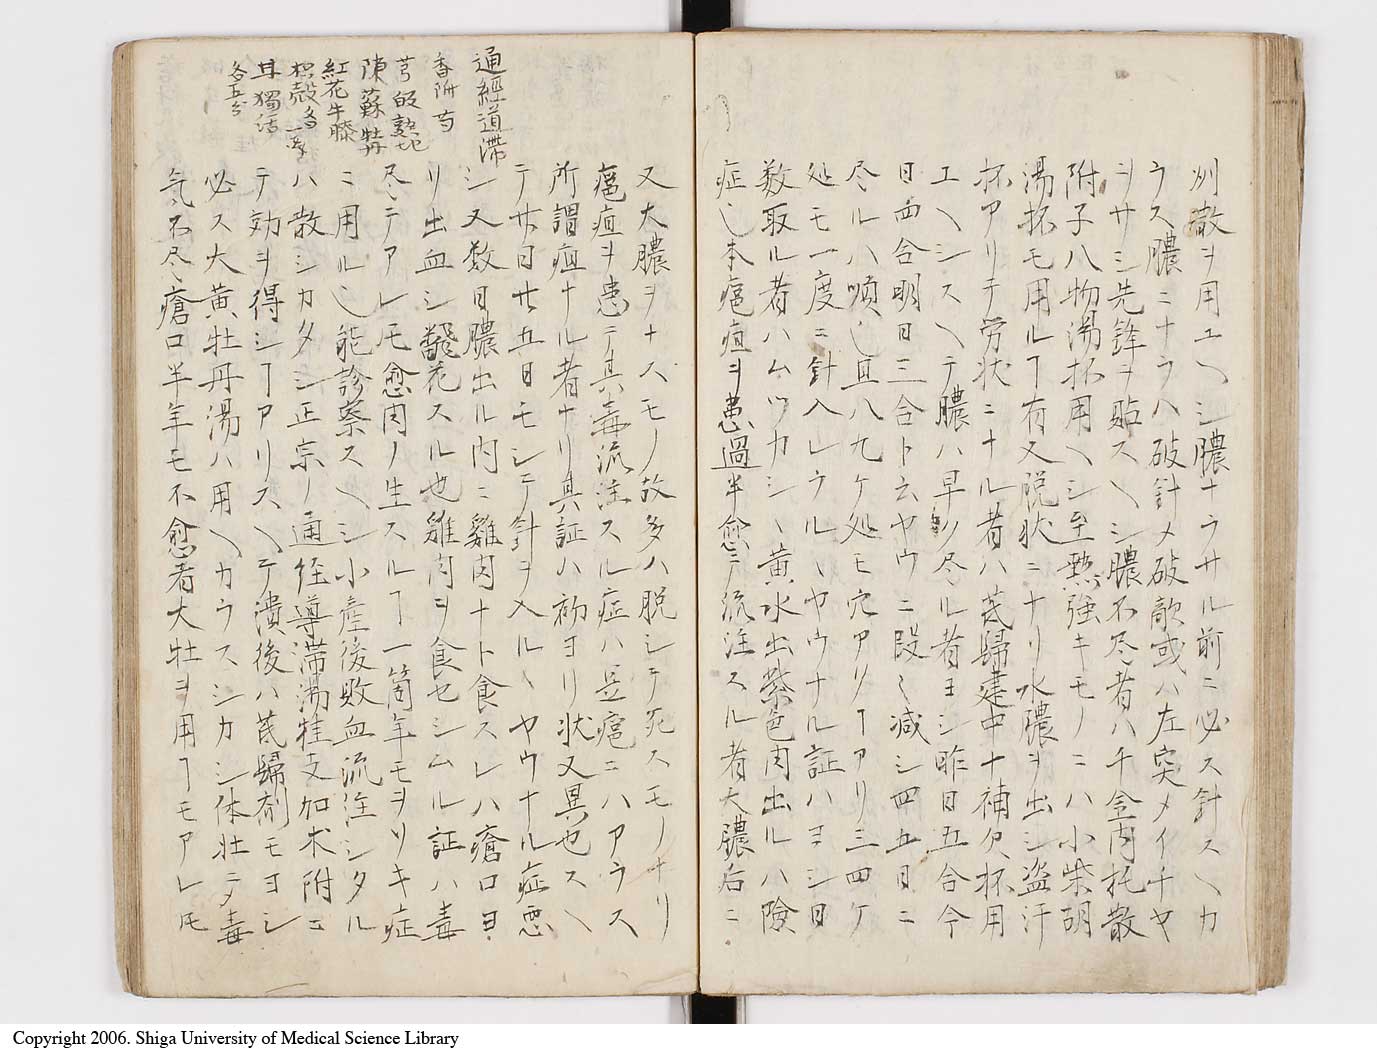 洲散ヲ用エヘシ膿ナラサル前ニ必ス針スヘカ
ラス膿ニナラハ破針メ破敵或ハ左突メイチヤ
ヲサシ先鋒ヲ貼スヘシ膿不尽者ハ千金内托散
附子八物湯抔用ヘシ至熱強キモノニハ小柴胡
湯抔モ用ルヿ有又脱状ニナリ水膿ヲ出シ盗汗
抔アリテ労状ニナル者ハ芪歸建中十補欠抔用
エヘシスヘテ膿ハ早ク尽ル者ヨシ昨日五合今
日四合明日三合ト云ヤウニ段〻減シ四五日ニ
尽ルハ順也且八九ケ処モ穴アクヿアリ三四ケ
処モ一度ニ針入レラルヽヤウナル証ハヨシ日
数取ル者ハムツカシヽ黄水出紫色肉出ルハ險
症也本疱疽ヲ患過半愈テ流注スル者大膿后ニ
通經道滞
香附 芍
芎 皈 熟地
陳 蘇 牡丹
紅花 牛膝
枳殻 各一戔
甘 獨活
各五分
又大膿ヲナスモノ故多ハ脱シテ死スモノナリ
疱疽ヲ患テ其毒流注スル症ハ豆疱ニハアラス
所謂疽ナル者ナリ其証ハ初ヨリ状又異也スヘ
テ廿日廿五日モシテ針ヲ入ルヽヤウナル症悪
シ又数日膿出ル内ニ雞肉ナト食スレハ瘡口ヨ
リ出血シ飜花スル也雞肉ヲ食セシムル証ハ毒
尽テアレ𪜈愈肉ノ生スルヿ一箇年モヲソキ症
ニ用ル也能診察スヘシ小産後敗血流注シタル
ハ散シカタシ正宗ノ通経導滞湯桂支加朮附ニ
テ効ヲ得シヿアリスヘテ潰後ハ芪歸剤モヨシ
必ス大黄牡丹湯ハ用ヘカラスシカシ体壮ニメ毒
気不尽瘡口半年モ不愈者大牡ヲ用ヿモアレ𪜈
Copyright 2006. Shiga University of Medical Science Library